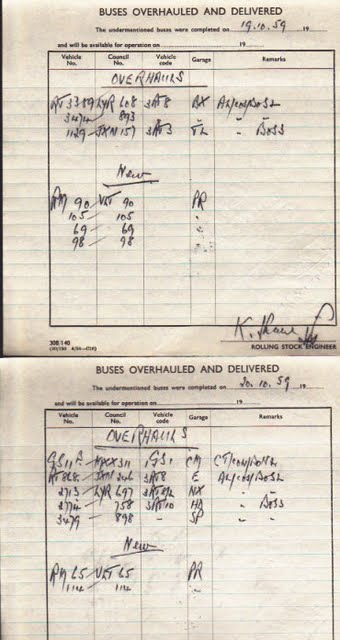 BUSES OVERHAULED AND DELIVERED
The undermentioned buses were completed on 19.10.59 19
and will be available for operation on 19
Vehicle No. Council No. Vehicle code Garage Remarks
OVERHAULS
RT 3389 LYR 608 3RT8
3474 893
1129 JXN 157 3RT3 TL " DOSS
New
RM 90 VLT 90 PR
105 105 "
69 69 "
98 98 "
ROLLING STOCK ENGINEER
308/140
BUSES OVERHAULED AND DELIVERED
The undermentioned buses were completed on 20.10.59 19
and will be available for operation on 19
Vehicle No. Council No. Vehicle code Garage Remarks
OVERHAULS
GS 11 MXX 311 1GS1
RT 868 JXN 246 3RT8 E
2713 LYR 697 NX " "
2774 758 3RT10 HA " DOSS
3479 898 - SP " "
New
RM 65 VLT 65 PR
114 114 "